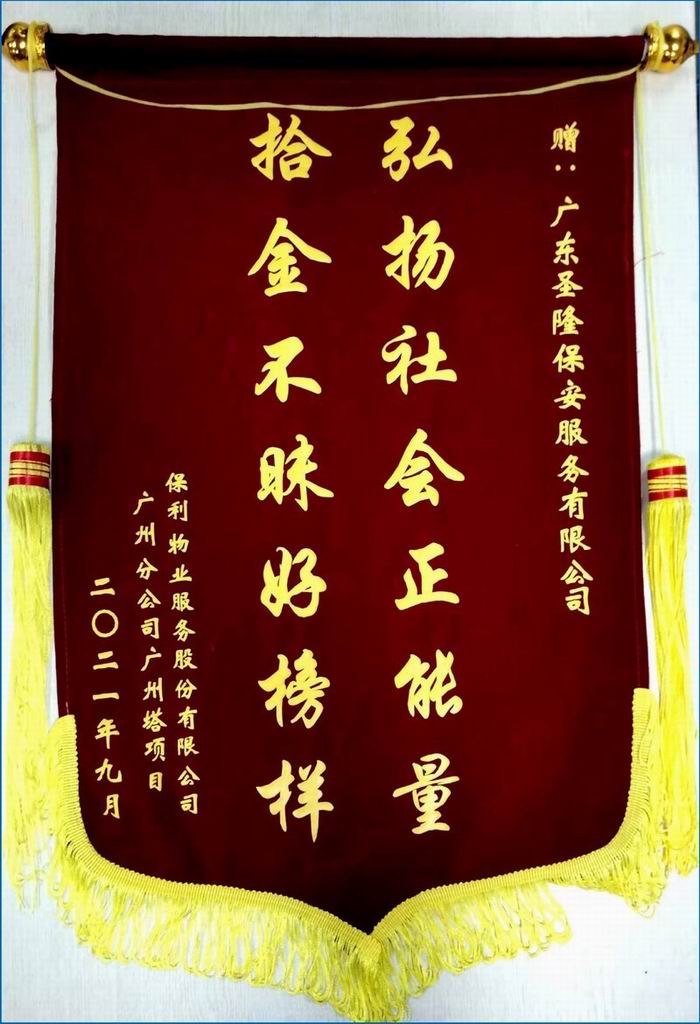 赠：广东圣隆保安服务有限公司
弘扬社会正能量
拾金不昧好榜样
保利物业服务股份有限公司
广州分公司广州塔项目
二〇二一年九月